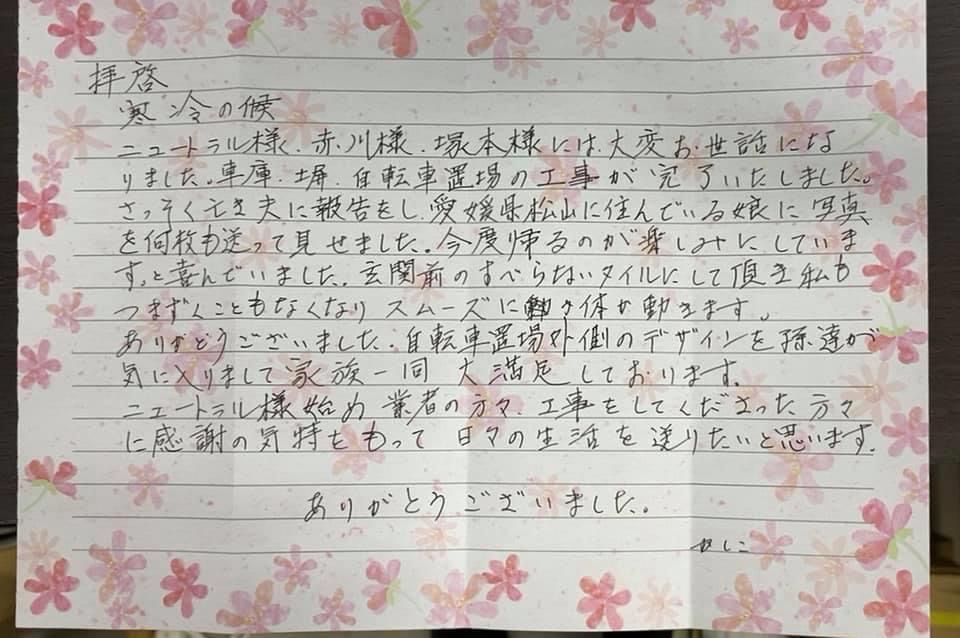 拝啓
寒冷の候
ニュートラル様、赤川様、塚本様には、大変お世話にな
りました。車庫、塀、自転車置場の工事が完了いたしました。
さっそく亡き夫に報告をし、愛媛県松山に住んでいる娘に写真
を何枚も送って見せました。今度帰るのが楽しみにしていま
す。と喜んでいました。玄関前のすべらないタイルにして頂き私も
つまずくこともなくなりスムーズに体が動きます。
ありがとうございました。自転車置場外側のデザインを孫達が
気に入りまして家族一同大満足しております。
ニュートラル様始め業者の方々、工事をしてくださった方々
に感謝の気持をもって日々の生活を送りたいと思います。
ありがとうございました。
かしこ